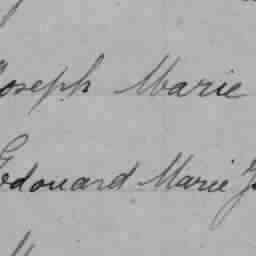 Joseph Marie
Edouard Marie